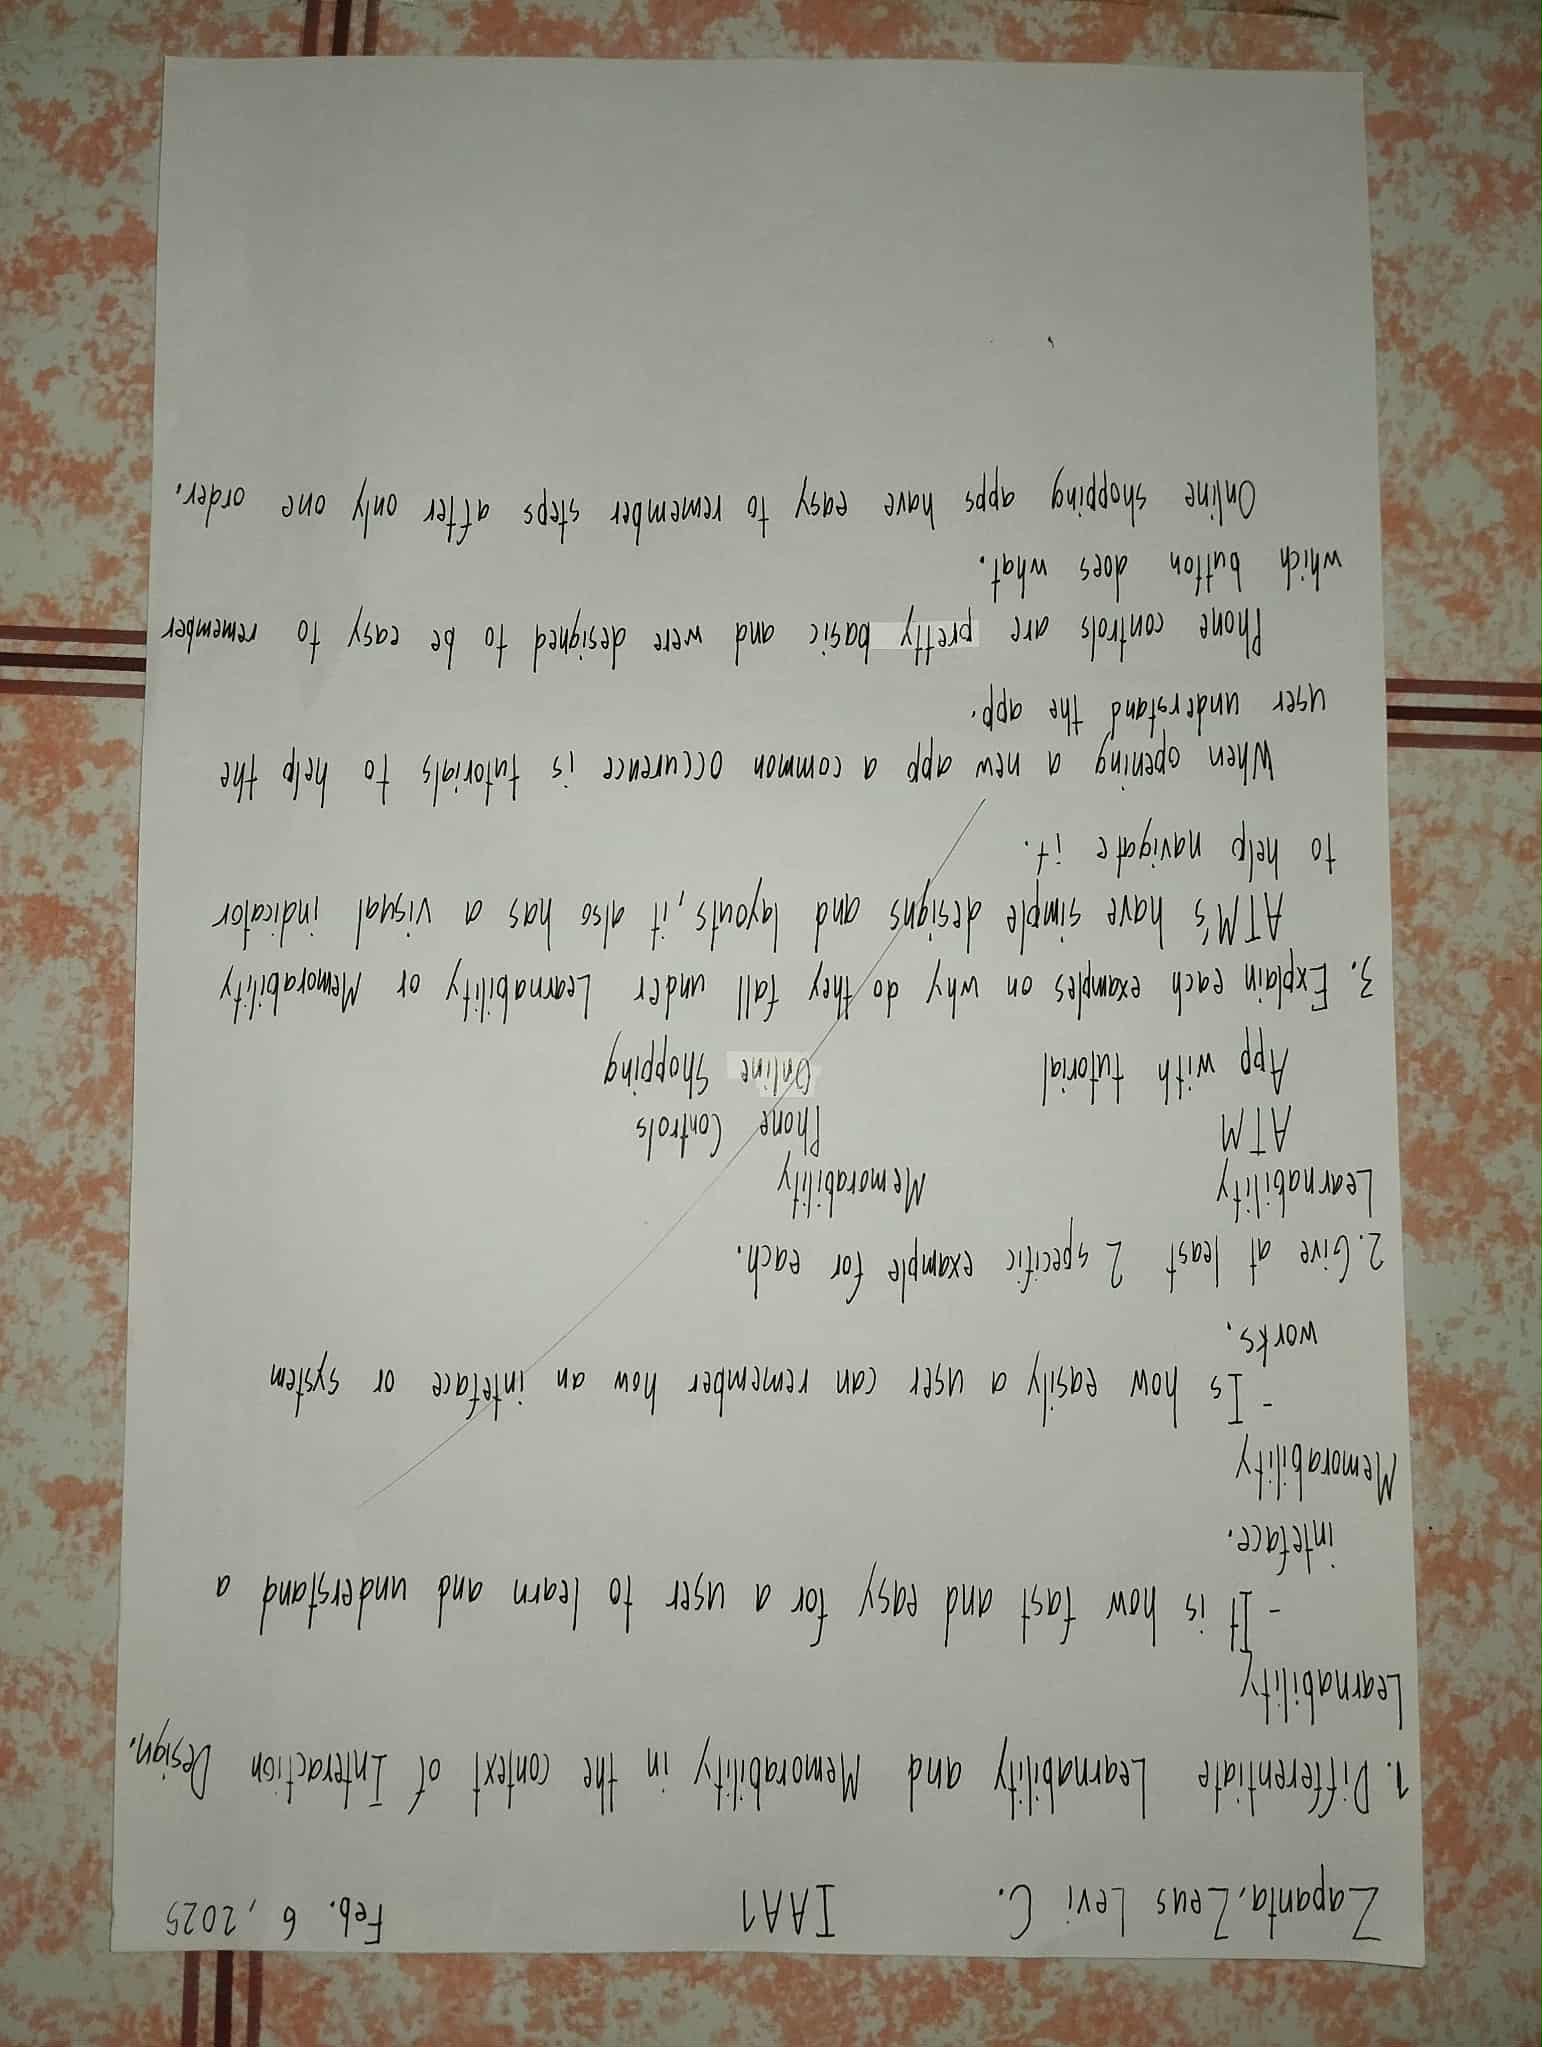 Zapanta, Zeus Levi C. IAA1 Feb. 6, 2025
1. Differentiate Learnability and Memorability in the context of Interaction Design.
Learnability
- It is how fast and easy for a user to learn and understand a
inteface.
Memorability
- Is how easily a user can remember how an inteface or system
works.
2. Give at least 2 specific example for each.
Learnability Memorability
ATM Phone Controls
App with tutorial Online Shopping
3. Explain each examples on why do they fall under Learnability or Memorability
ATM's have simple designs and layouts, it also has a visual indicator
to help navigate it.
When opening a new app a common occurence is tutorials to help the
user understand the app.
Phone controls are pretty basic and were designed to be easy to remember
which button does what.
Online shopping apps have easy to remember steps after only one order.